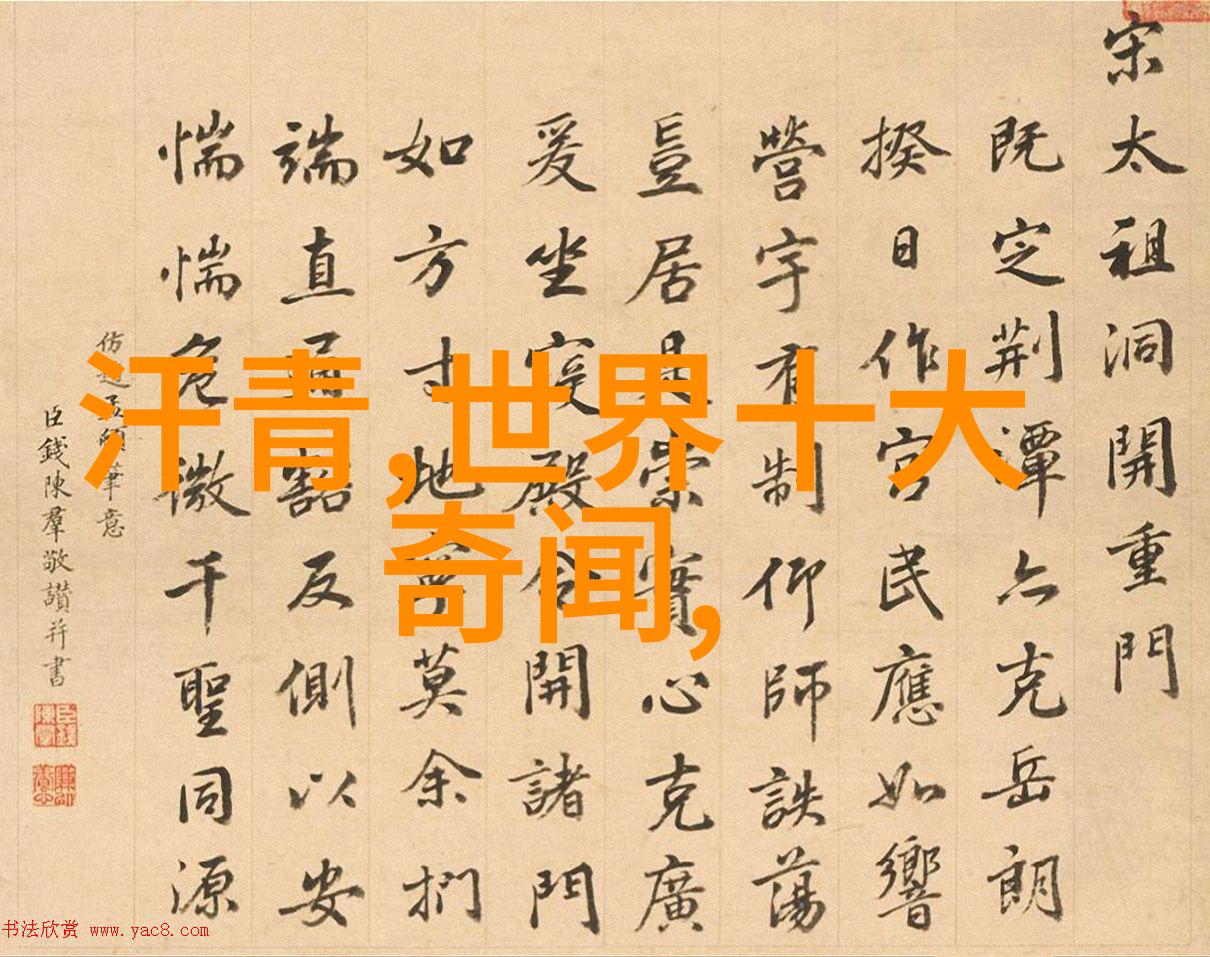 宋太祖洞開重門
既定荆潭亦克岳朗
揆日作宮民應如響
營宇有制仰師詄蕩
豈居是崇實心克廣
爰坐寢殿令開諸門
如方寸地寧莫余捫
端直通豁反側以安
惴惴危微千聖同源
仿趙孟頫筆意
臣錢陳羣敬讚并書
汗青,世界十大
奇闻,
书法欣赏 www.yac8.com